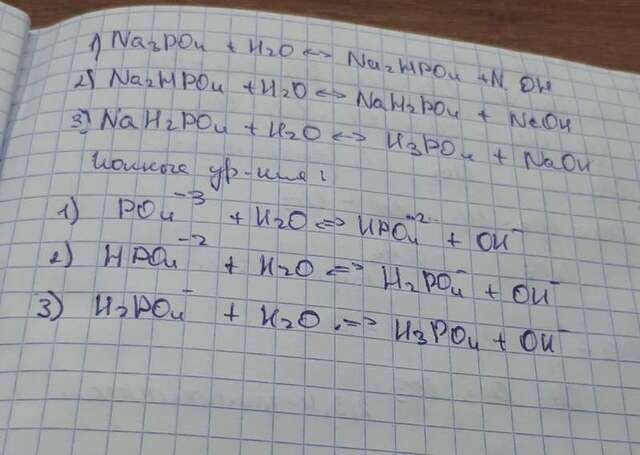 1) Na2PO4 + H2O <=> Na2HPO4 + N OH
2) Na2HPO4 + H2O <=> NaH2PO4 + NaOH
3) NaH2PO4 + H2O <=> H3PO4 + NaOH
Ионные ур-ния:
1) PO4^-3 + H2O <=> HPO4^-2 + OH^-
2) HPO4^-2 + H2O <=> H2PO4^- + OH^-
3) H2PO4^- + H2O <=> H3PO4 + OH^-